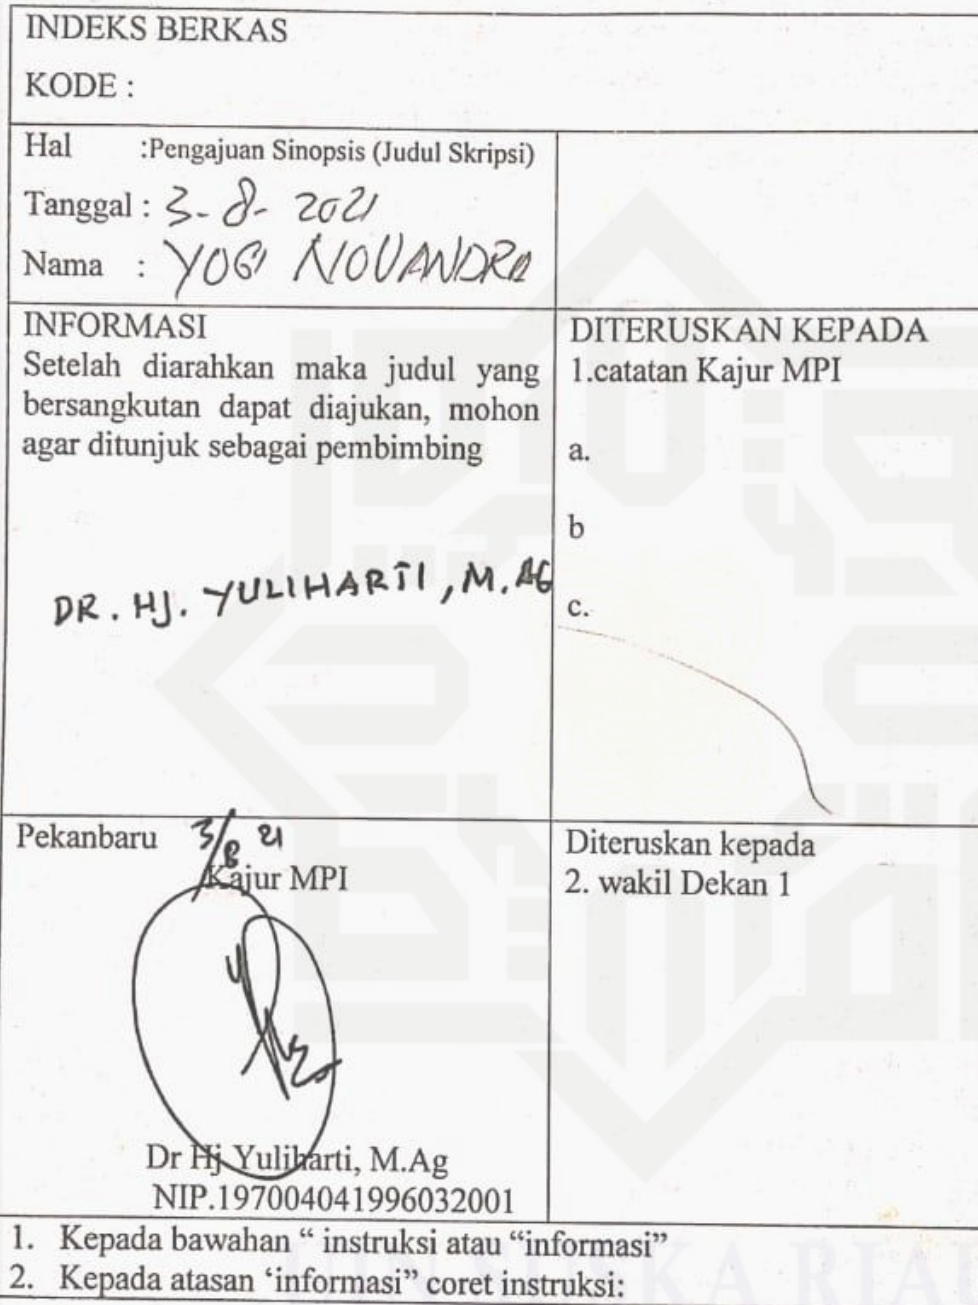 INDEKS BERKAS
KODE :
Hal :Pengajuan Sinopsis (Judul Skripsi)
Tanggal : 3-8-2021
Nama : YOGI NOVANDRA
INFORMASI
Setelah diarahkan maka judul yang
bersangkutan dapat diajukan, mohon
agar ditunjuk sebagai pembimbing
DR. HJ. YULIHARTI, M.AG
DITERUSKAN KEPADA
1.catatan Kajur MPI
a.
b
c.
Pekanbaru 3/8 21
Kajur MPI
Dr Hj Yuliharti, M.Ag
NIP.197004041996032001
Diteruskan kepada
2. wakil Dekan 1
1. Kepada bawahan “ instruksi atau “informasi”
2. Kepada atasan ‘informasi” coret instruksi:
UIN SUSKA RIAU